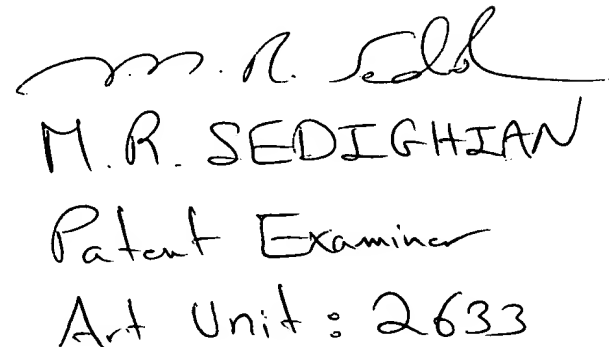 M. R. Sedd
M.R. SEDIGHIAN
Patent Examiner
Art Unit: 2633